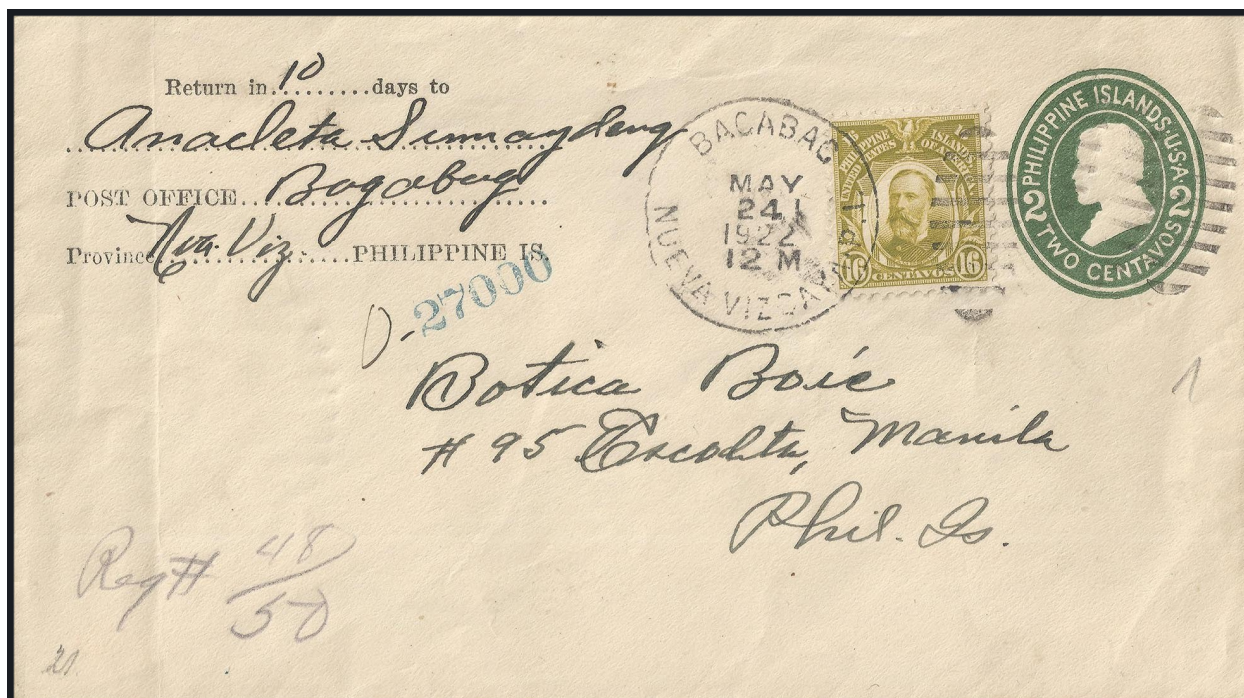 Return in 10 days to
Anacleta Sumaydeng
POST OFFICE Bagabag
Province Nva. Viz. PHILIPPINE IS.
BAGABAG
NUEVA VIZCAYA, P.I.
MAY
24
1922
12 M
UNITED STATES OF AMERICA
PHILIPPINE ISLANDS
16 CENTAVOS 16
PHILIPPINE ISLANDS·U·S·A·
2 TWO CENTAVOS 2
D- 27000
Botica Boie
# 95 Escolta, Manila
Phil. Is.
1
Reg # 48/50
21